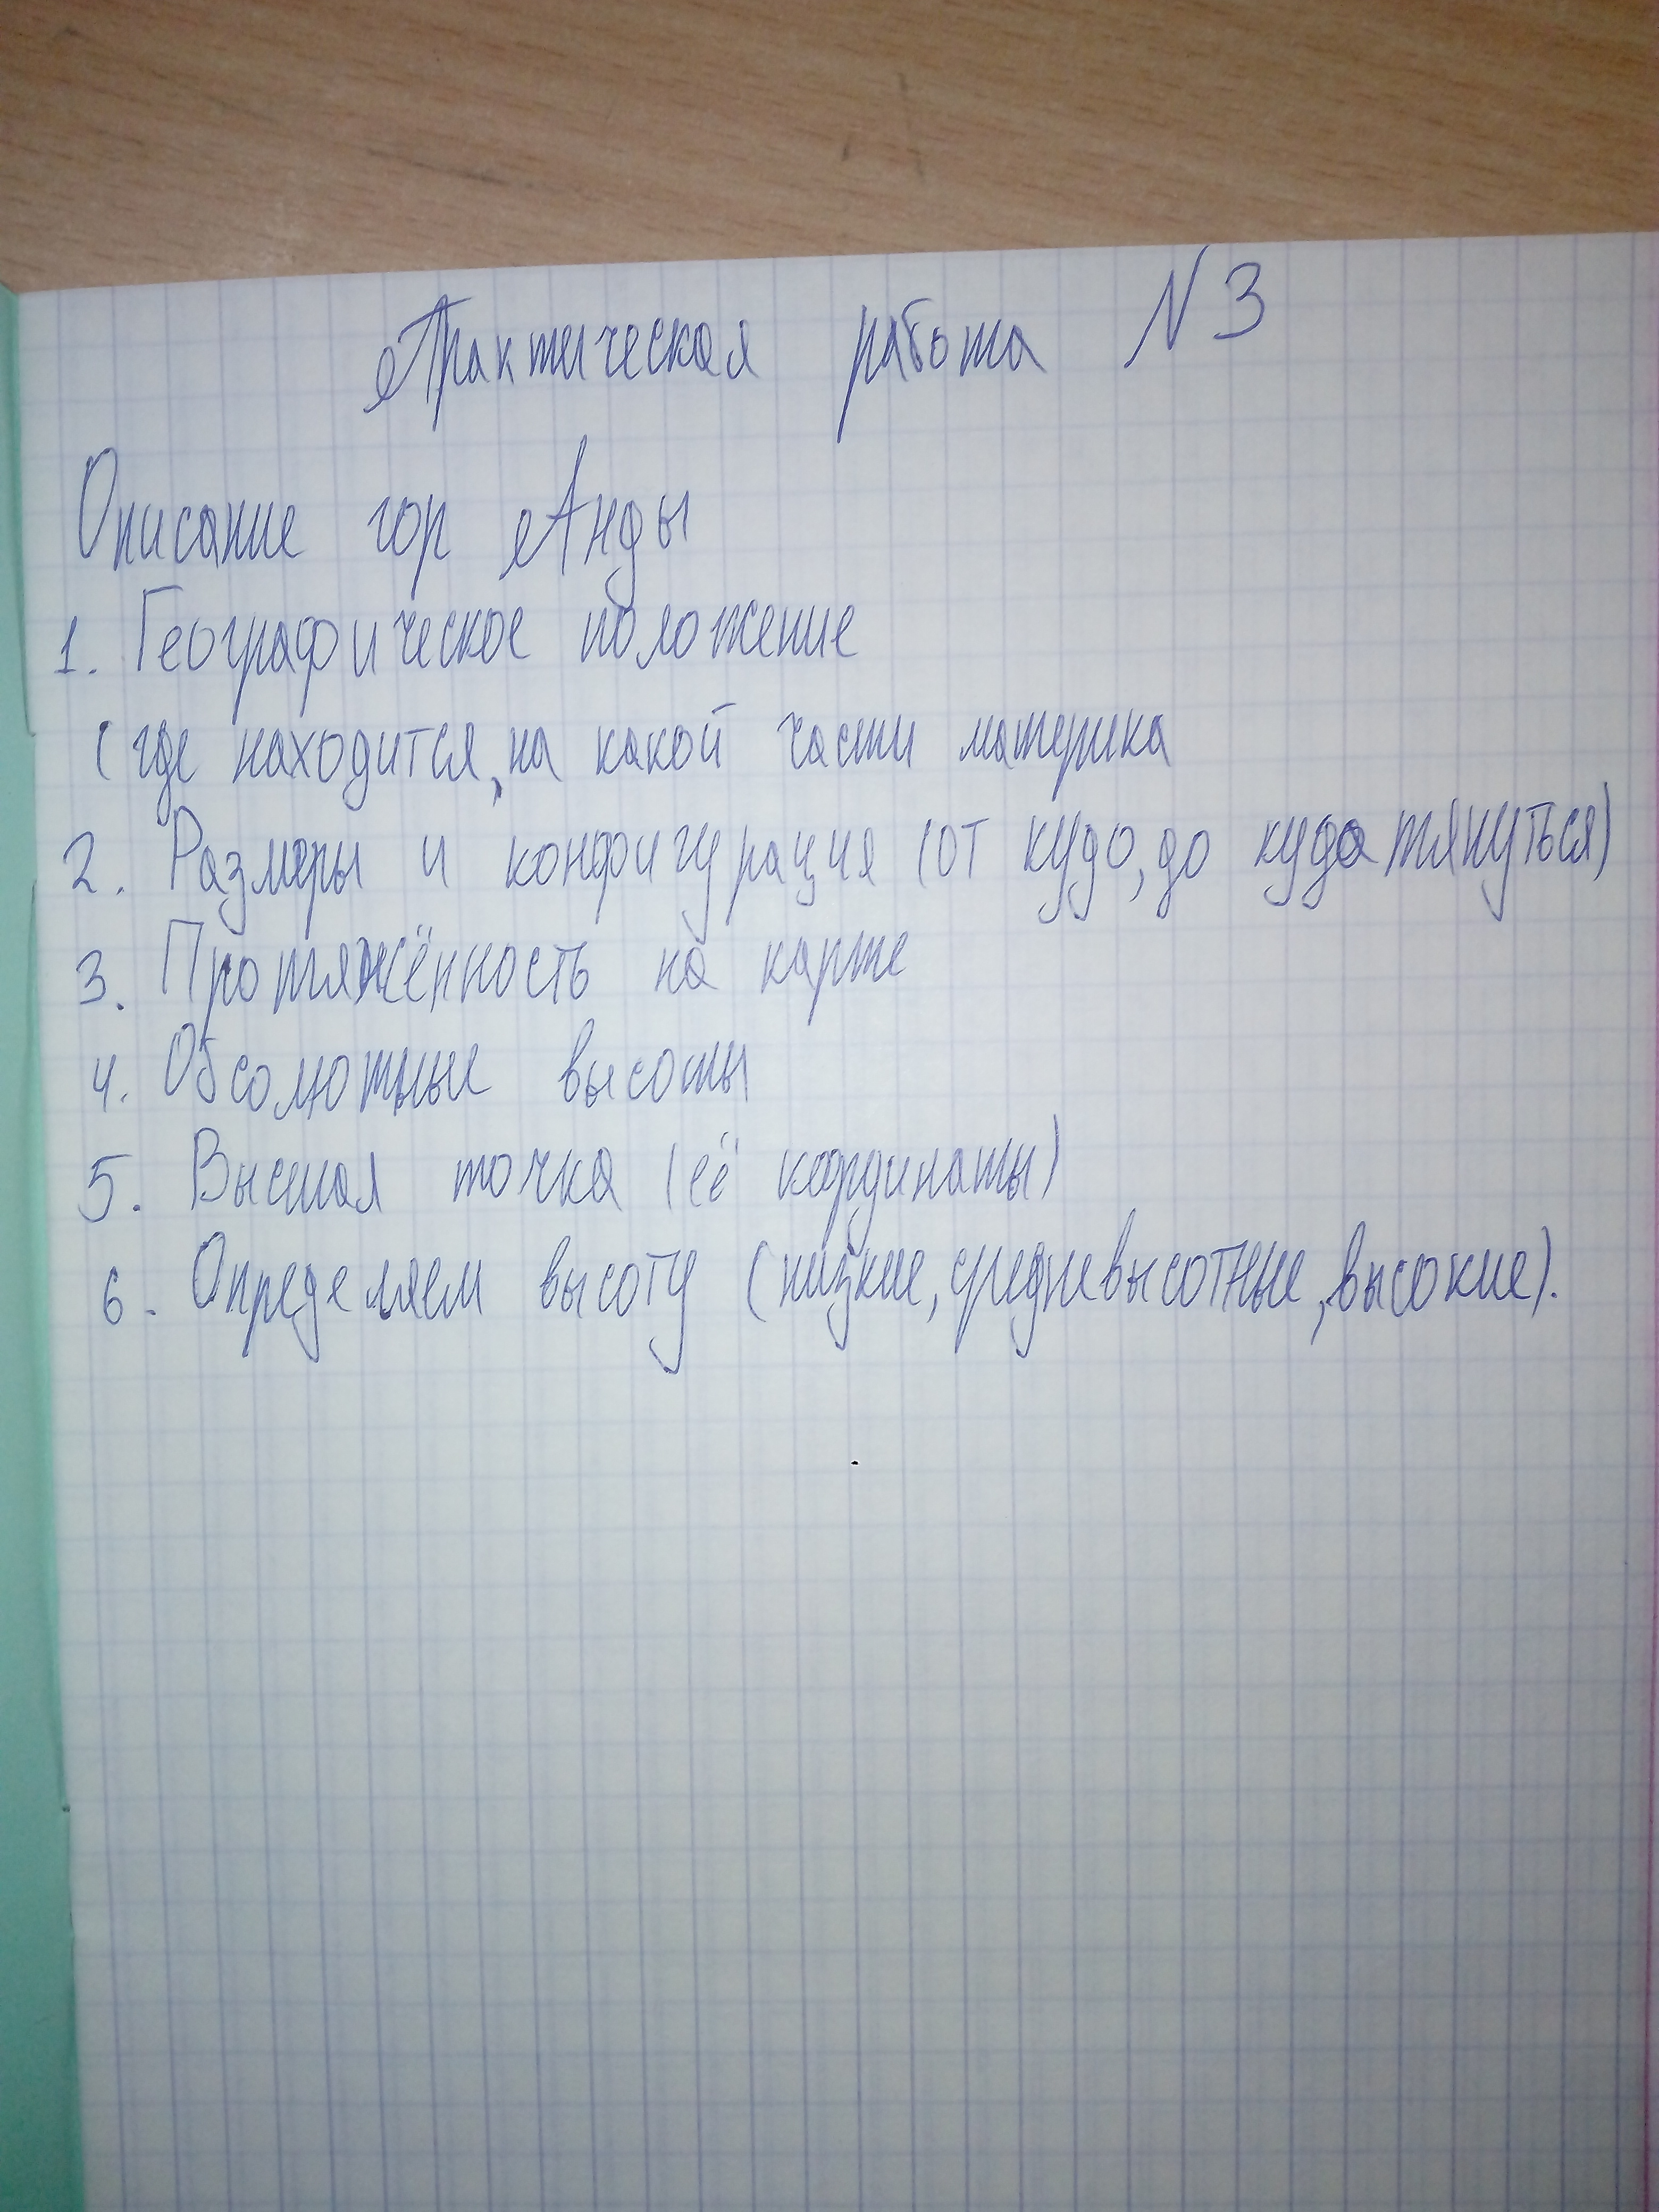 Практическая работа N 3
Описание гор Анды
1. Географическое положение
(где находится, на какой части материка
2. Размеры и конфигурация (от кудо, до куда тянуться)
3. Протяжённость на карте
4. Обсолютные высоты
5. Высшая точка (её кординаты)
6. Определяем высоту (низкие, средневысотные, высокие).